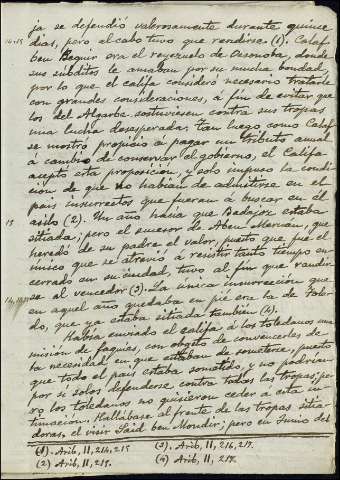 ja se defendió valerosamente durante quince
14.15 dias, pero al cabo tuvo que rendirse (1). Calaf
ben Bequir era el reyezuelo de Osonoba, donde
sus subditos le amaban por su mucha bondad,
por lo que el califa consideró necesario tratarle
con grandes consideraciones, á fin de evitar que
los del Algarbe sostuviesen contra sus tropas
una lucha desesperada. Tan luego como Calaf
se mostró propicio á pagar un tributo anual
á cambio de conservar el gobierno, el Califa
aceptó esta proposicion, y solo impuso la condi-
cion de que no habian de admitirse en el
pais insurrectos que fueran á buscar en el
15 asilo (2). Un año hacia que Badajoz estaba
sitiada; pero el sucesor de Aben Meruán, que
heredó de su padre el valor, puesto que fué el
unico que se atrevió á resistir tanto tiempo en-
cerrado en su ciudad, tuvo al fin que rendir
se al vencedor (3). La única insurreccion que
en aquel año quedaba en pié era la de Tole-
do, que ya estaba sitiada tambien (4).
Habia enviado el califa á los toledanos una
mision de faquies, con objeto de convencerles de
la necesidad en que estaban de someterse, puesto
que todo el pais estaba sometido, y no podrian
por si solos defenderse contra todas las tropas; pe-
ro los toledanos no quisieron ceder á esta in-
timacion. Hallábase al frente de las tropas sitia-
doras, el visir Said ben Mondir; pero en Junio del
(1). Arib, II, 214, 215
(2) Arib, II, 215.
(3). Arib, II, 216, 217.
(4) Arib, II, 217.